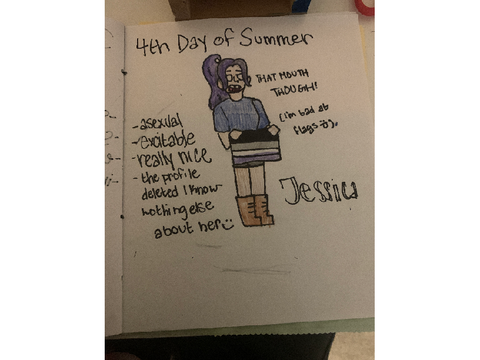 4th Day of Summer
THAT MOUTH
THOUGH!
(i'm bad at
flags
- asexual
- excitable
- really nice
- the profile
deleted I know
nothing else
about her
Jessica